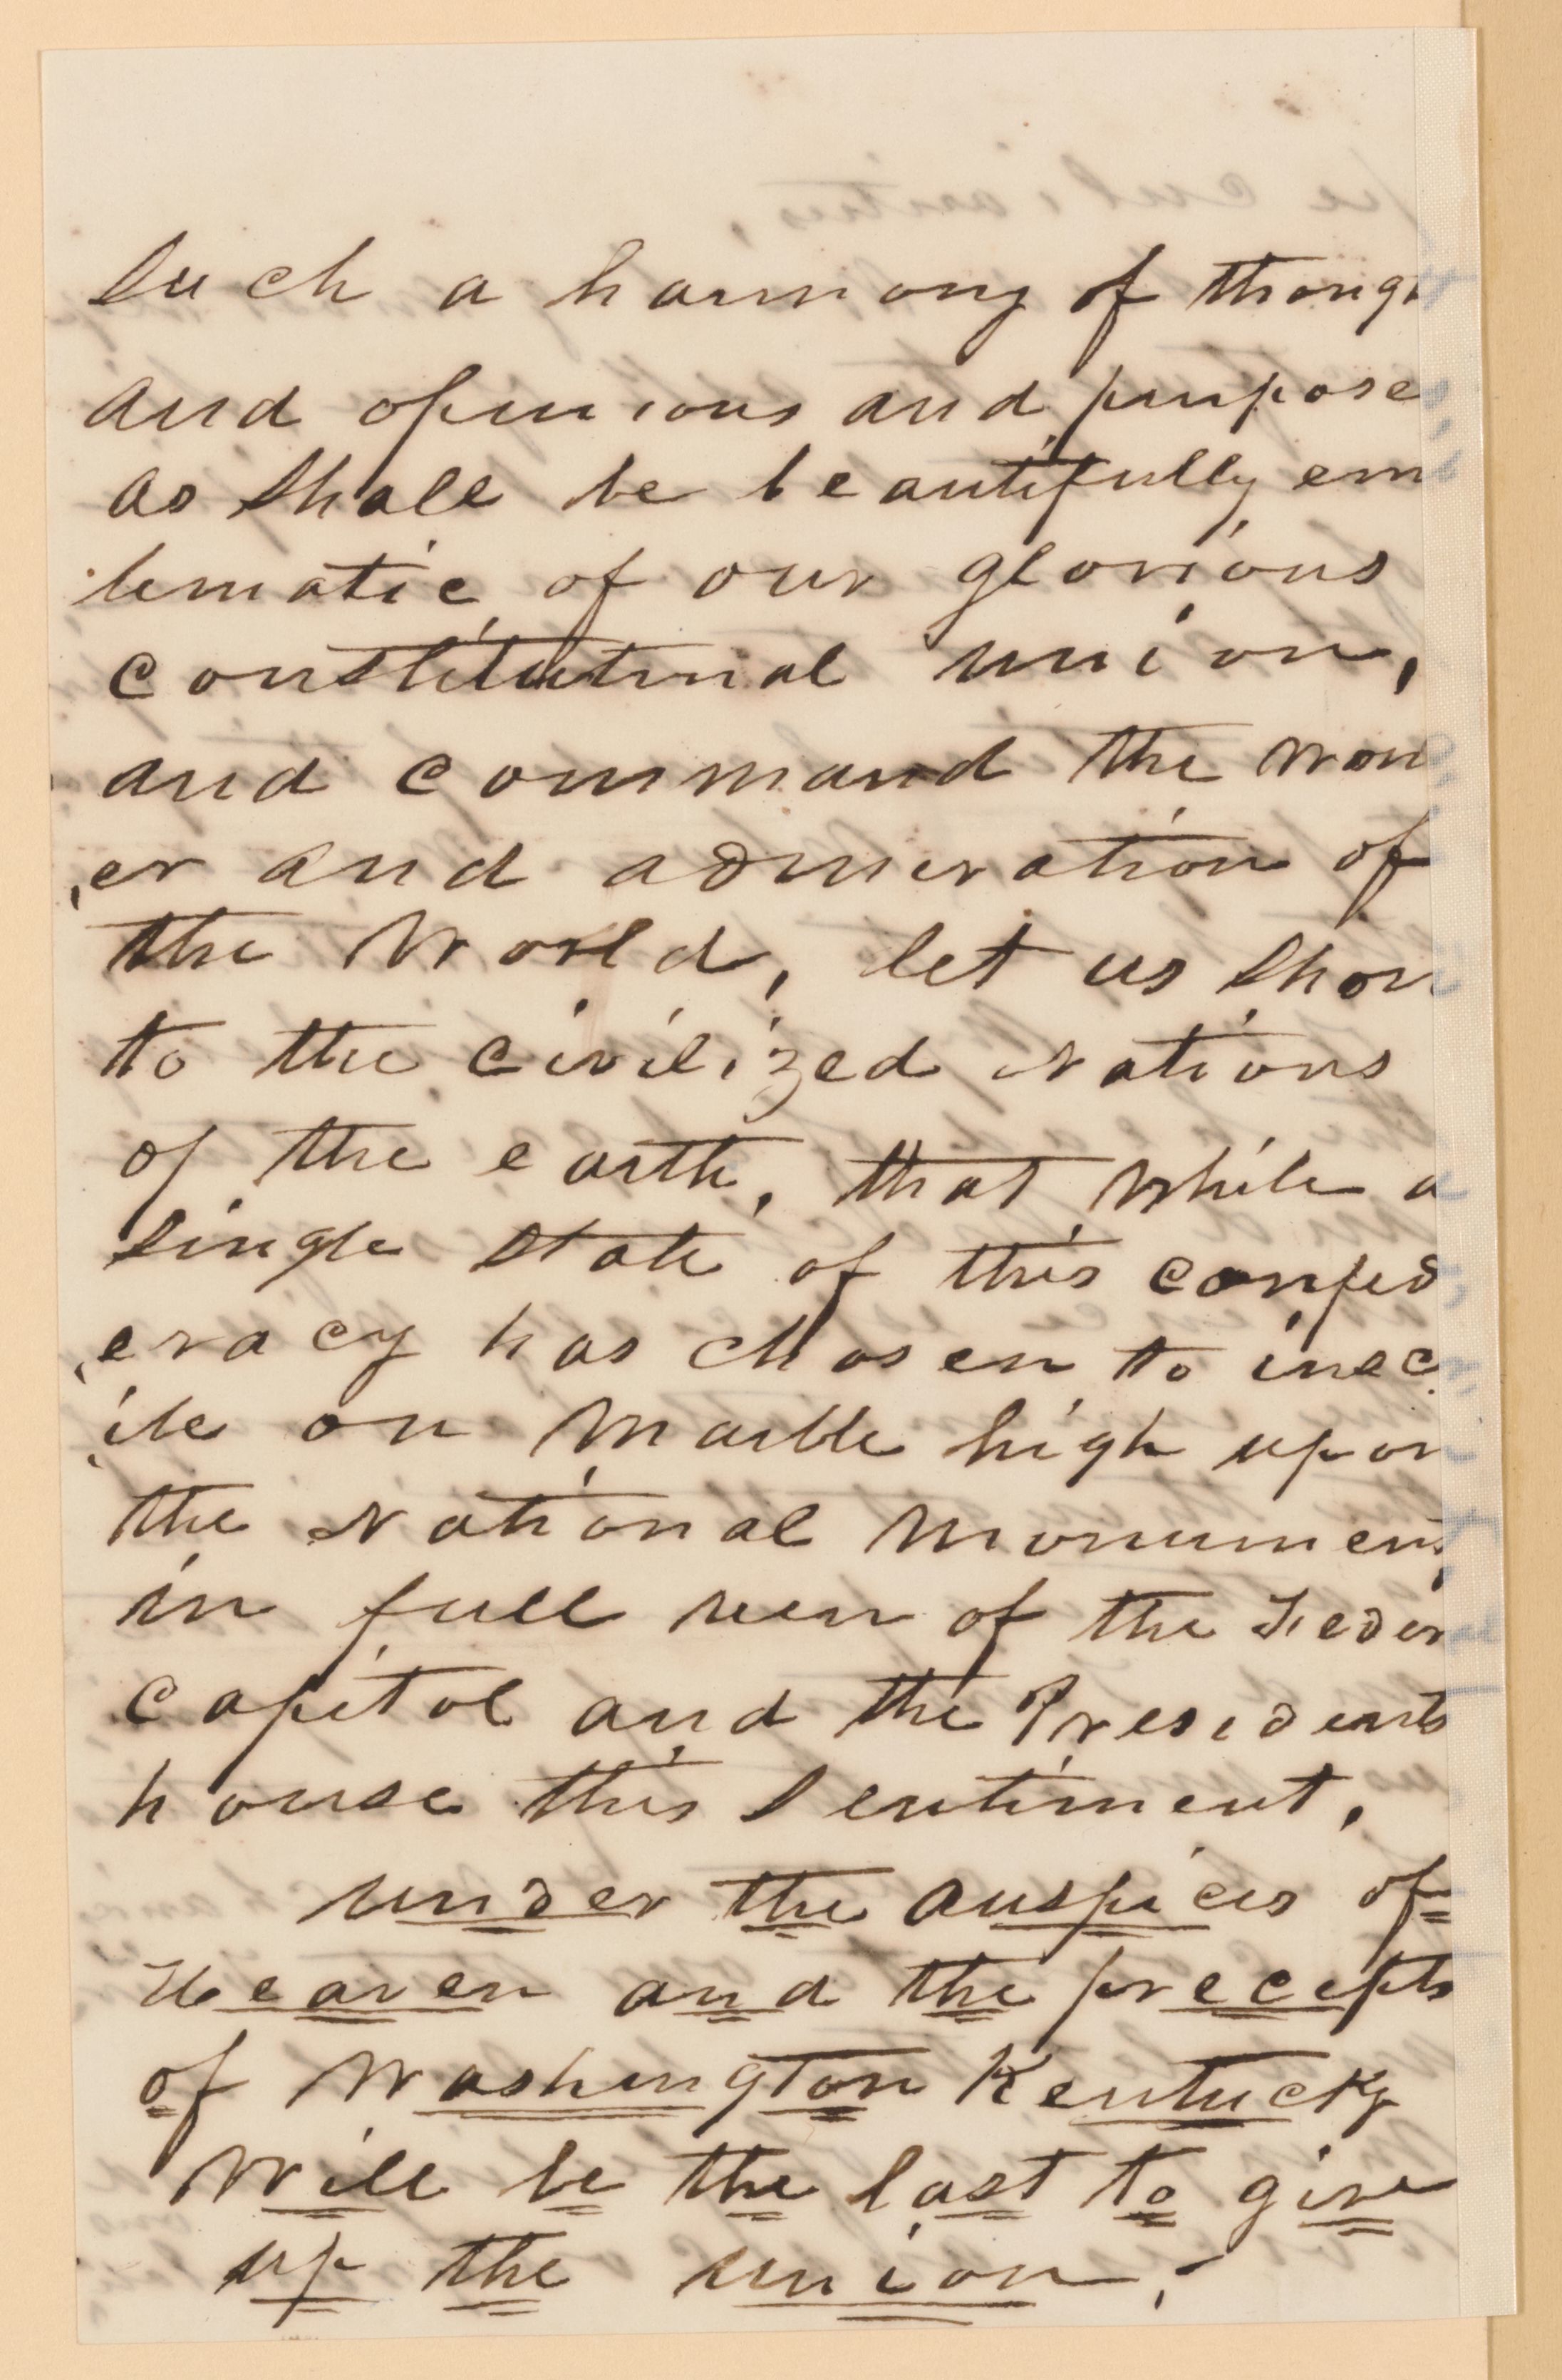 such a harmony of though
and opinions and purposes
as shall be beautifully em
blematic of our glorious
constitutional union,
and command the won
,er and admiration of
the World, let us show
to the civilized nations
of the earth, that while a
single state of this confed
,eracy has chosen to insc
,ibe on Marble high upon
the National Monument,
in full view of the Federal
Capitol and the Presidents
house this sentiment.
under the auspices of
Heaven and the precepts
of Washington Kentucky
Will be the last to give
up the union,-